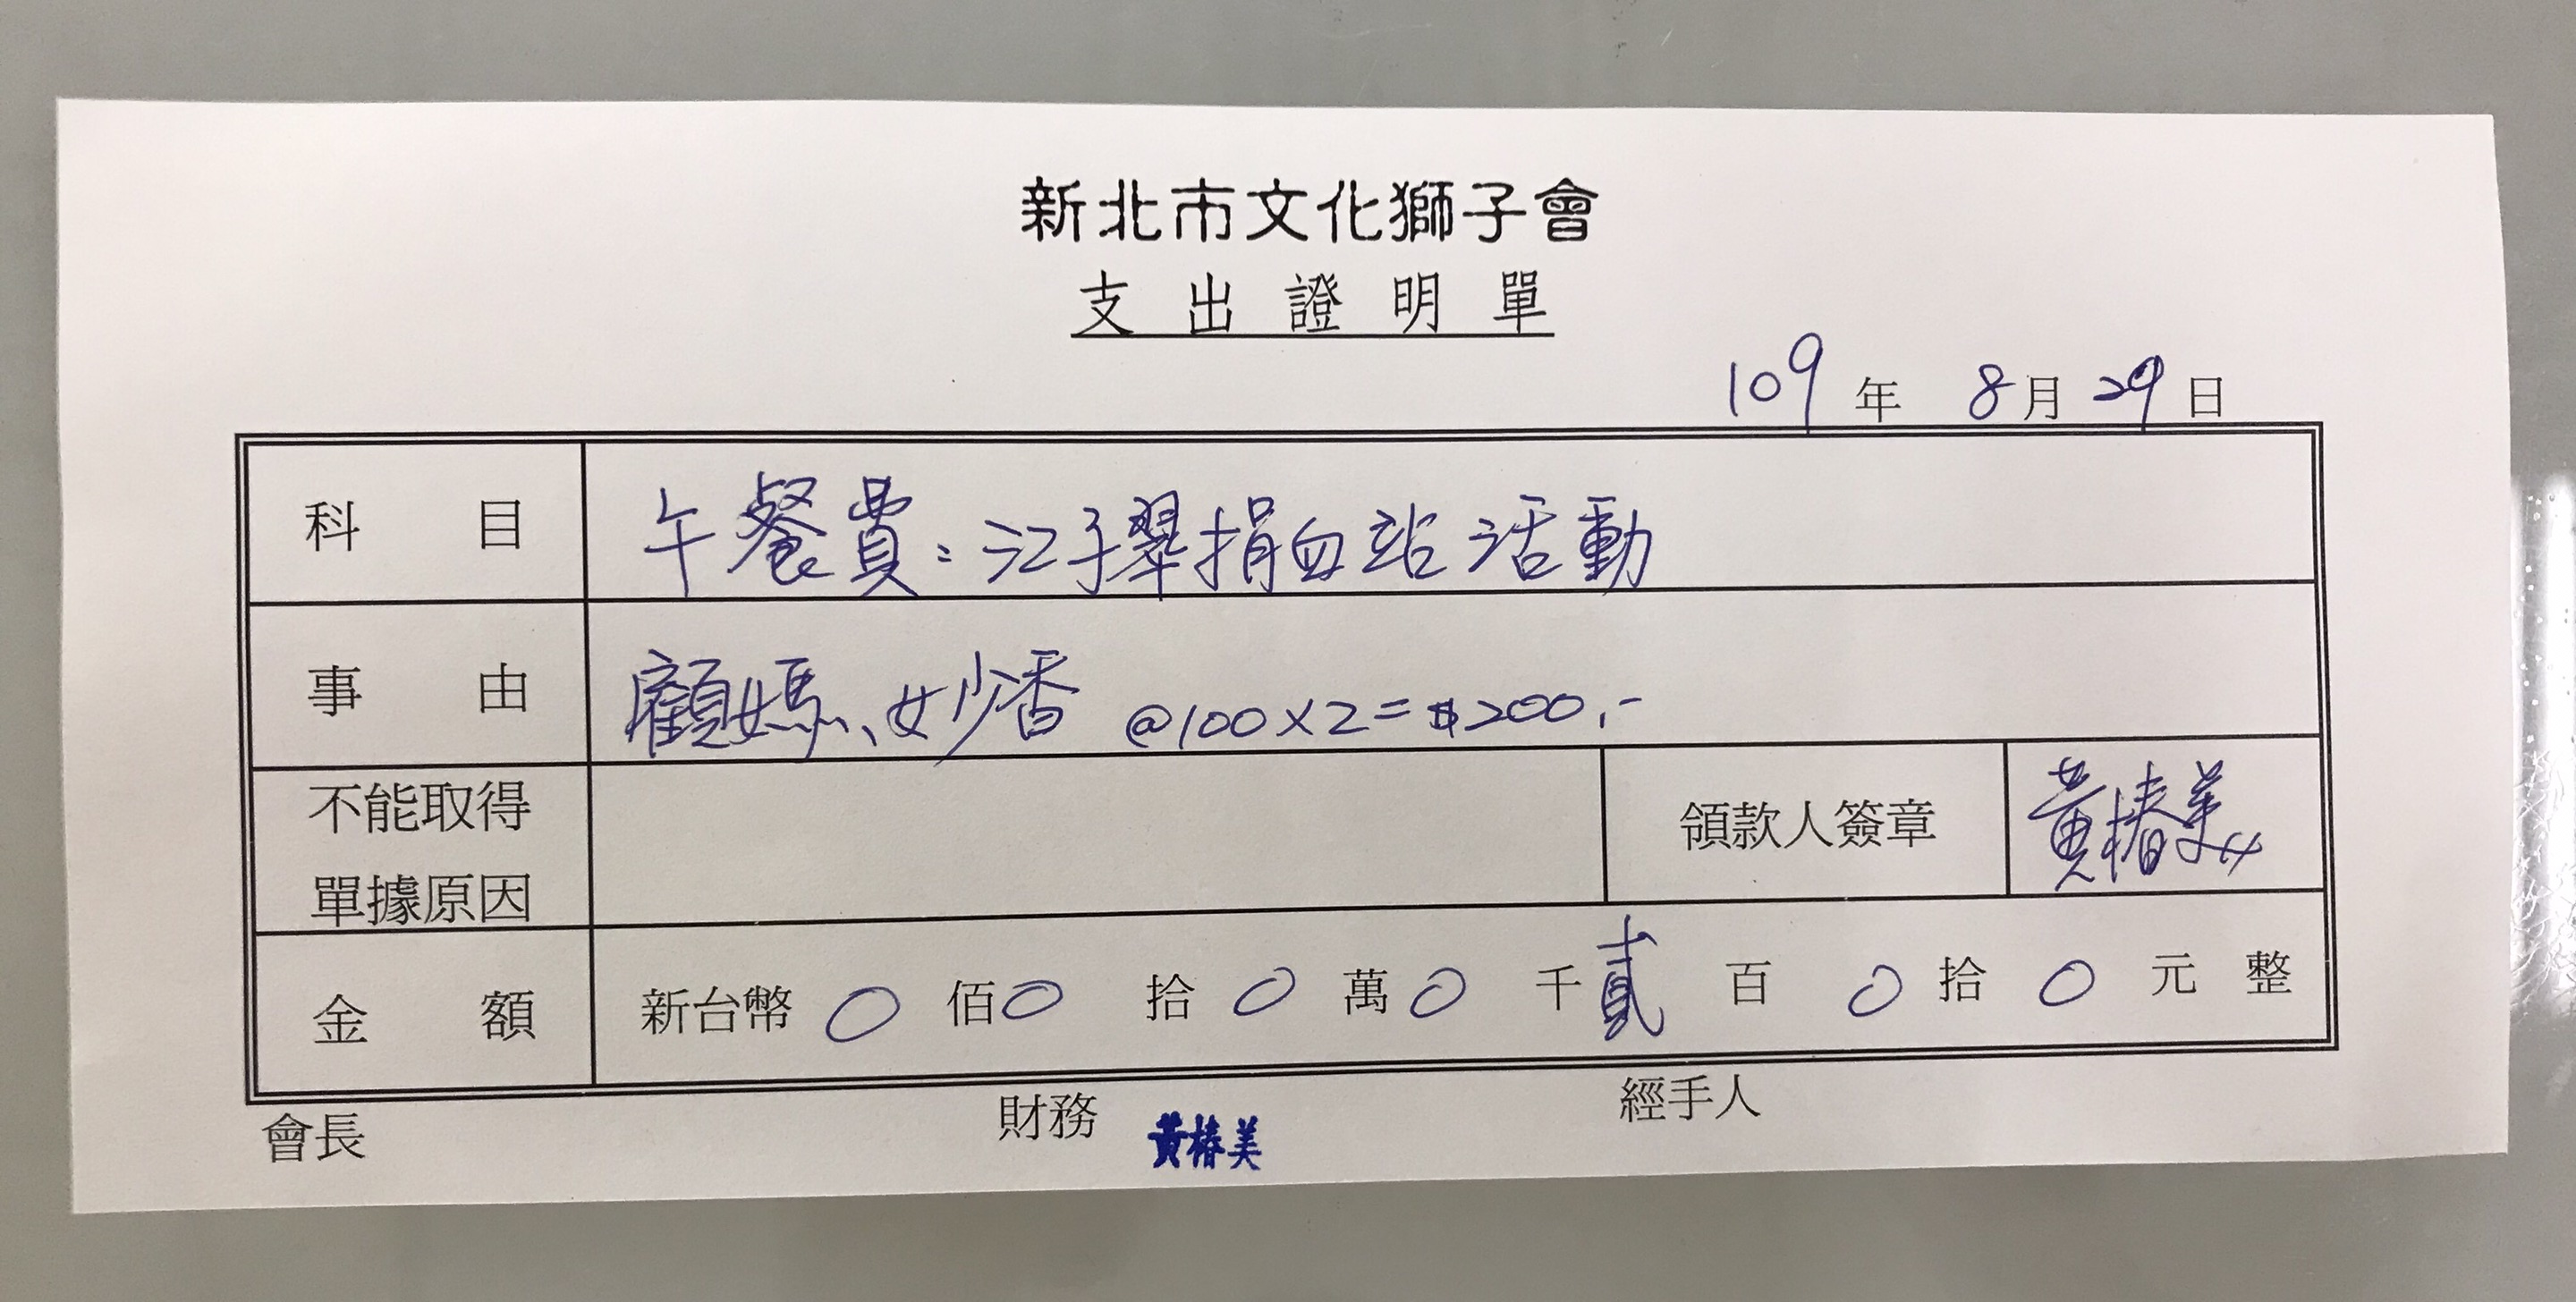 新北市文化獅子會
支出證明單
109年 8月29日
科目 午餐費：江子翠捐血站活動
事由 顧媽、妙香 @100×2=$200.-
不能取得單據原因 領款人簽章 黃椿美
金額 新台幣 0 佰 0 拾 0 萬 0 千 貳 百 0 拾 0 元整
會長 財務 黃椿美 經手人